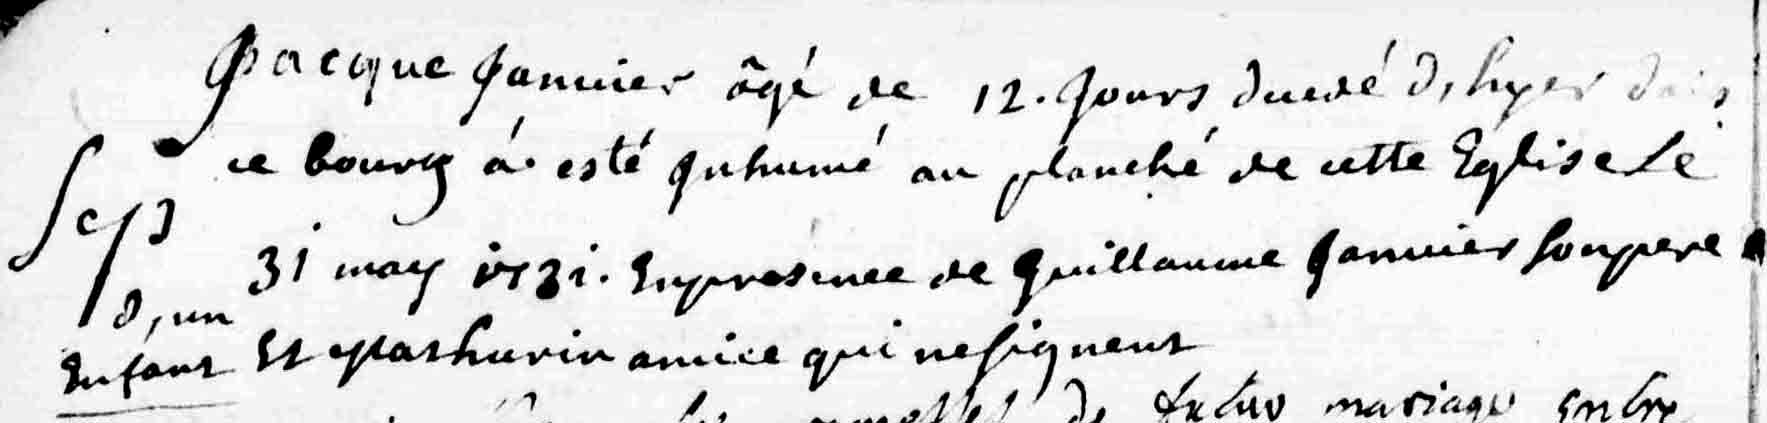 Jacque Janvier âgé de 12. Jours duedé d'hyer dans
ce bourg á esté Inhumé au planché de cette Eglise Le
31 may 1731. Enpresence de Guillaume Janvier Sonpere
Et Mathurin amice qui neSignent
Sep
d'un
Enfant
de futur mariage entre